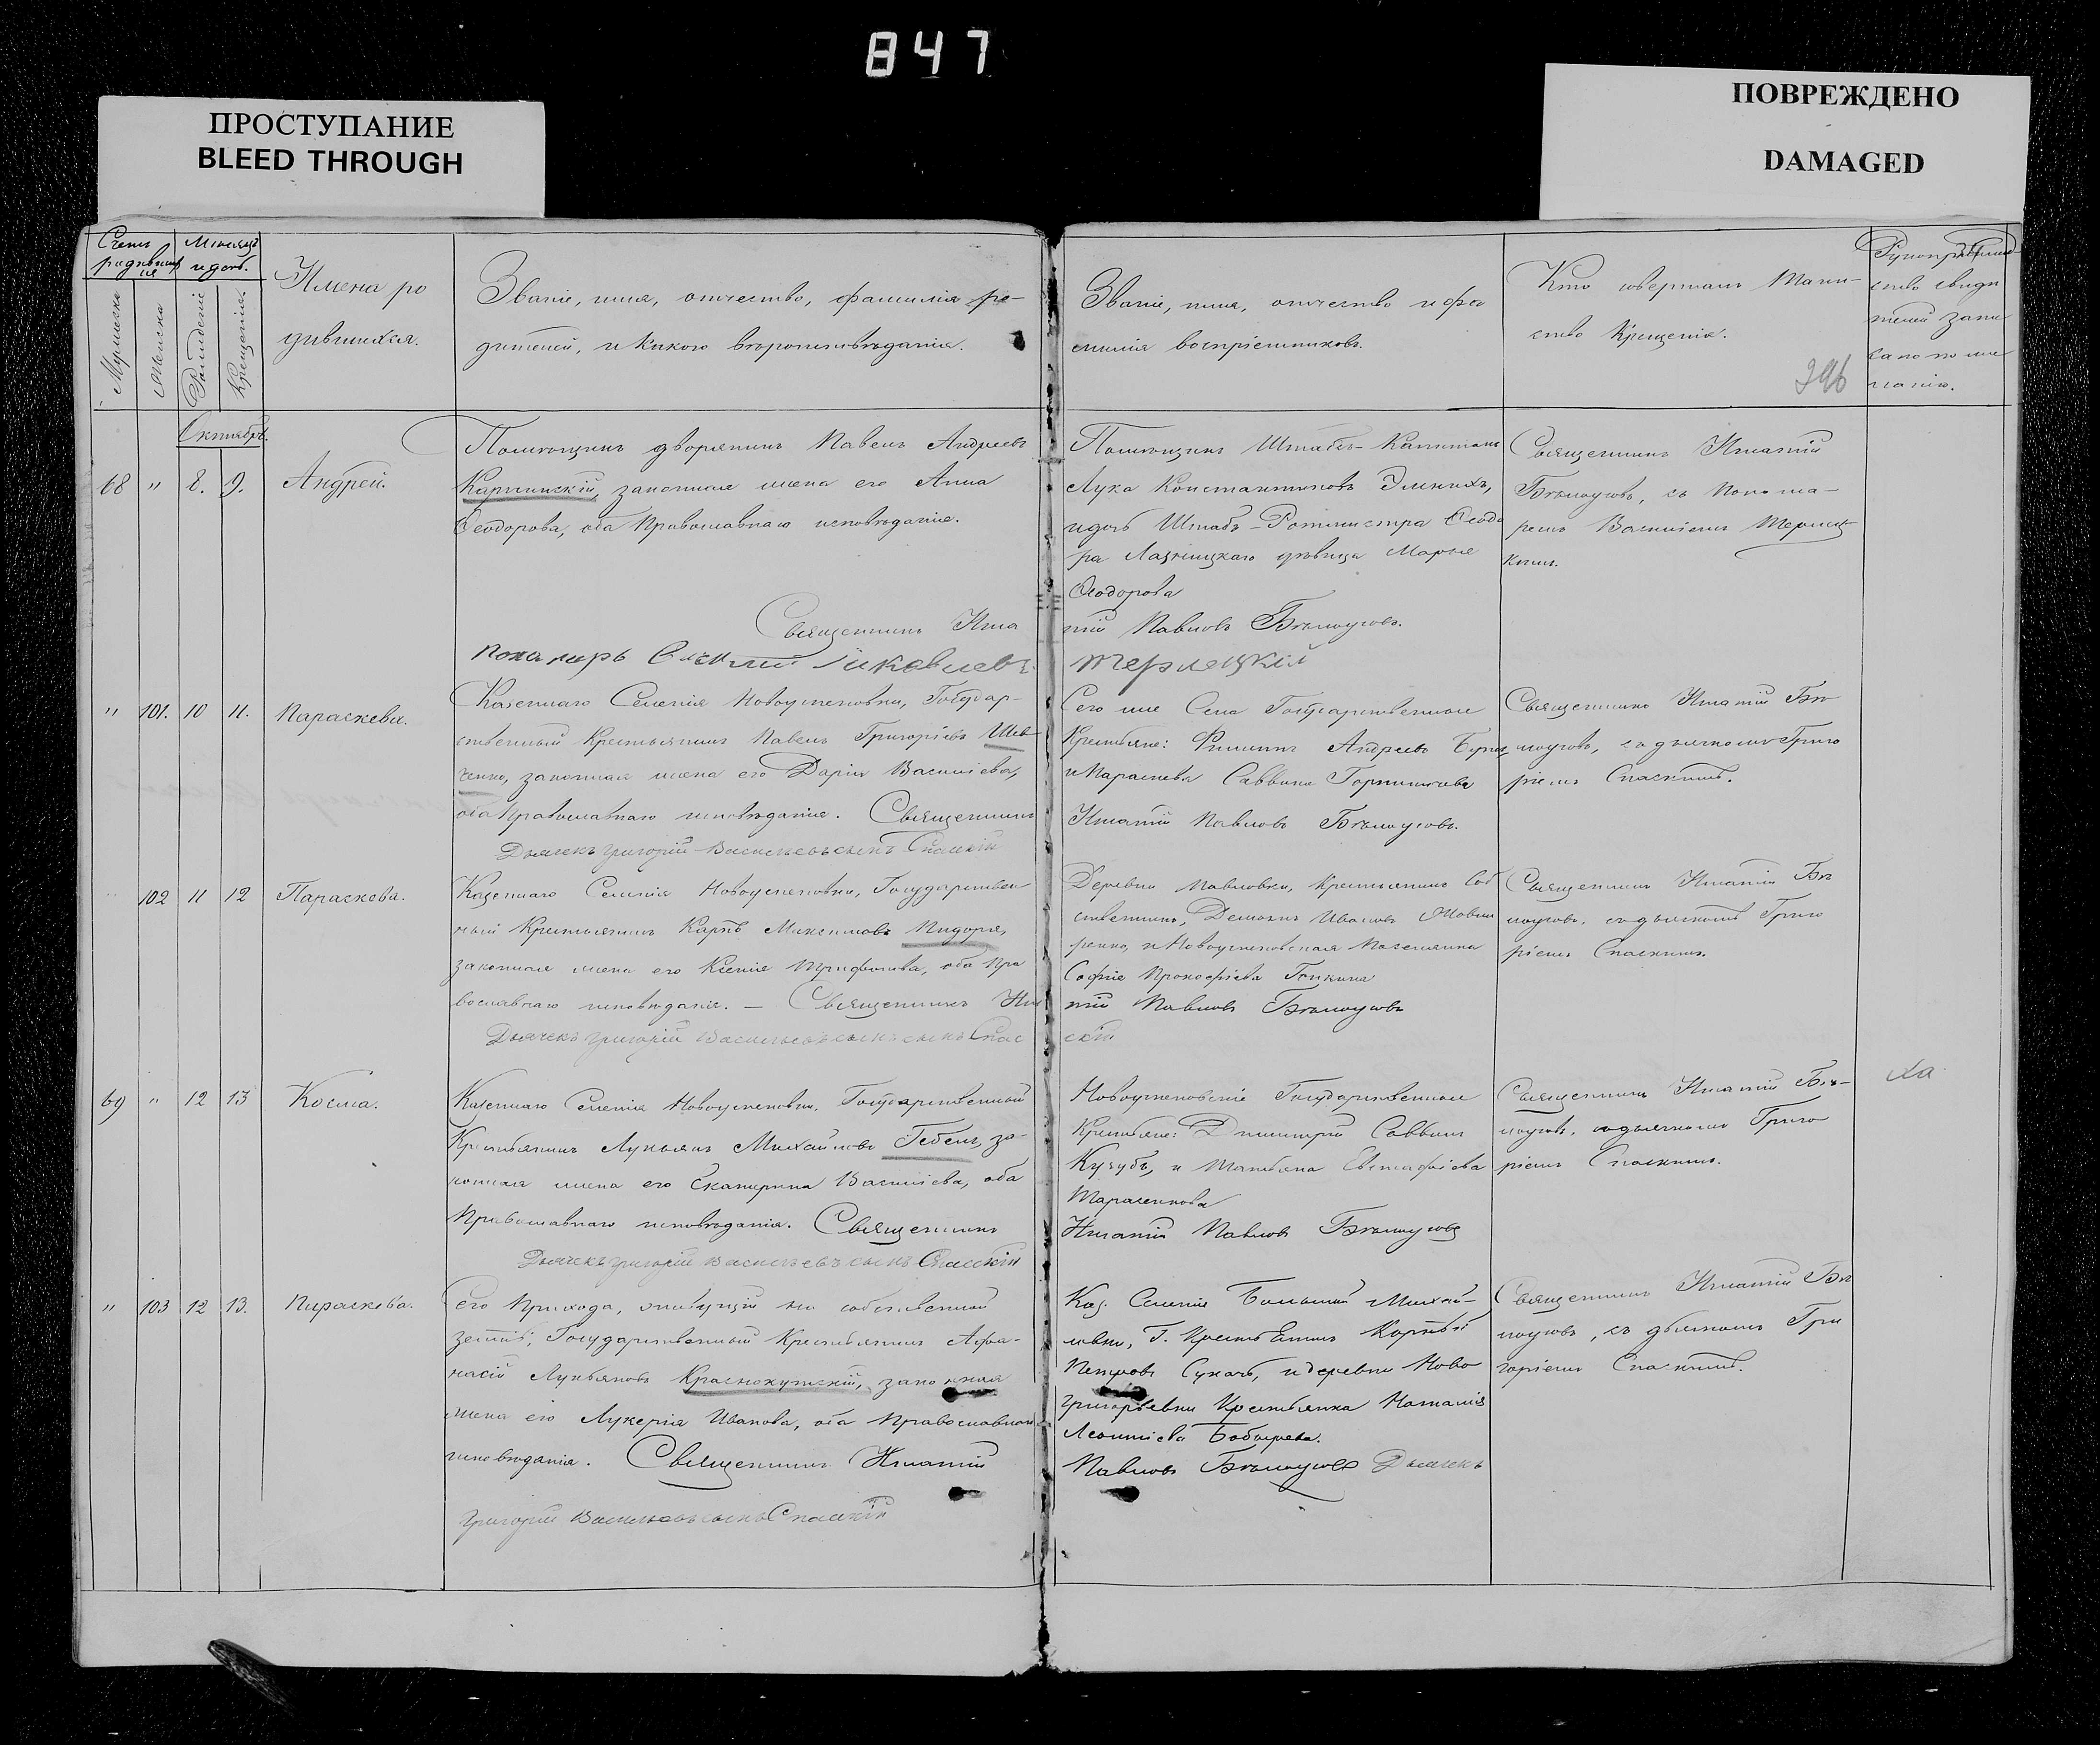 847
ПРОСТУПАНИЕ
BLEED THROUGH
ПОВРЕЖДЕНО
DAMAGED
Счетъ родившихся
Мужеска
Женска
Мѣсяцъ и день.
Рожденiе
Крещенiя.
Имена ро
дившихся.
Званiе, имя, отчество, фамилiя ро-
дителей, и какого вѣроисповѣданiя.
Званiе, имя, отчество и фа
милiя воспрiемниковъ.
Кто совершалъ Таин-
ство Крещенiя.
Рукоприклад-
ство свидѣ
телей запи
си по же
ланiю.
Октябрь.
68 " 8. 9. Андрей.
Помѣщикъ дворянинъ Павелъ Андреевъ
законная жена его Анна
Ѳеодорова, оба Православнаго исповѣданiя.
Помѣщикъ Штабсъ-Капитанъ
Лука Константиновъ
и дочь Штабъ-Ротмистра Ѳеодо
ра дѣвица Марiя
Ѳеодорова
Священникъ Игнатiй
Бѣлоусовъ, съ Понома-
ремъ Василiемъ Терлец
кимъ.
Священникъ Игна
тiй Павловъ Бѣлоусовъ.
Пономарь Яковлевъ
Терлецкiй
" 101. 10 11. Параскева.
Казеннаго Селенiя Новоуспеновки, Государ-
ственный Крестьянинъ Павелъ Григорiевъ Шев
ченко, законная жена его Дарiя Василiева,
оба Православнаго исповѣданiя. Священникъ
Дьячекъ Григорiй Васильевъ сынъ Спаскiй
Сего же Села Государственные
Крестьяне: Филиппъ Андреевъ
и Параскева Саввина
Игнатiй Павловъ Бѣлоусовъ.
Священникъ Игнатiй Бѣ
лоусовъ, съ дьячкомъ Григо
рiемъ Спаскимъ.
102 11 12 Параскева.
Казеннаго Селенiя Новоуспеновки, Государствен
ный Крестьянинъ Карпъ Максимовъ
законная жена его Ксенiя Трифонова, оба Пра
вославнаго исповѣданiя. — Священникъ Игна
Дьячекъ Григорiй Васильевъ сынъ Спас
Деревни Павловки, Крестьянинъ Соб
ственникъ, Ивановъ
и Новоуспеновская Поселянка
Софiя Прокофiева
тiй Павловъ Бѣлоусовъ
скiй
Священникъ Игнатiй Бѣ
лоусовъ, съ дьячкомъ Григо
рiемъ Спаскимъ.
69 " 12 13 Косма.
Казеннаго Селенiя Новоуспеновки, Государственный
Крестьянинъ Лукьянъ Михайловъ за-
конная жена его Екатерина Василiева, оба
Православнаго исповѣданiя. Священникъ
Дьячекъ Григорiй Васильевъ сынъ Спасскiй
Новоуспеновскiе Государственные
Крестьяне: Димитрiй Саввинъ
и Татьяна Евстафiева
Тарасенкова
Игнатiй Павловъ Бѣлоусовъ
Священникъ Игнатiй Бѣ-
лоусовъ, съ дьячкомъ Григо
рiемъ Спаскимъ.
" 103 12 13. Параскева.
Его Прихода, живущiй на собственной
землѣ, Государственный Крестьянинъ Афа-
насiй Лукьяновъ Краснокутскiй, законная
жена его Лукерiя Иванова, оба Православнаго
исповѣданiя. Священникъ Игнатiй
Григорiй Васильевъ сынъ Спаскiй
Каз. Селенiя Большой Михай-
ловки, Г. Крестьянинъ
Петровъ и деревни Ново
григорьевки Крестьянка Наталiя
Леонтiева
Павловъ Бѣлоусовъ Дьячекъ
Священникъ Игнатiй Бѣ
лоусовъ, съ дьячкомъ Гри
горiемъ Спаскимъ.